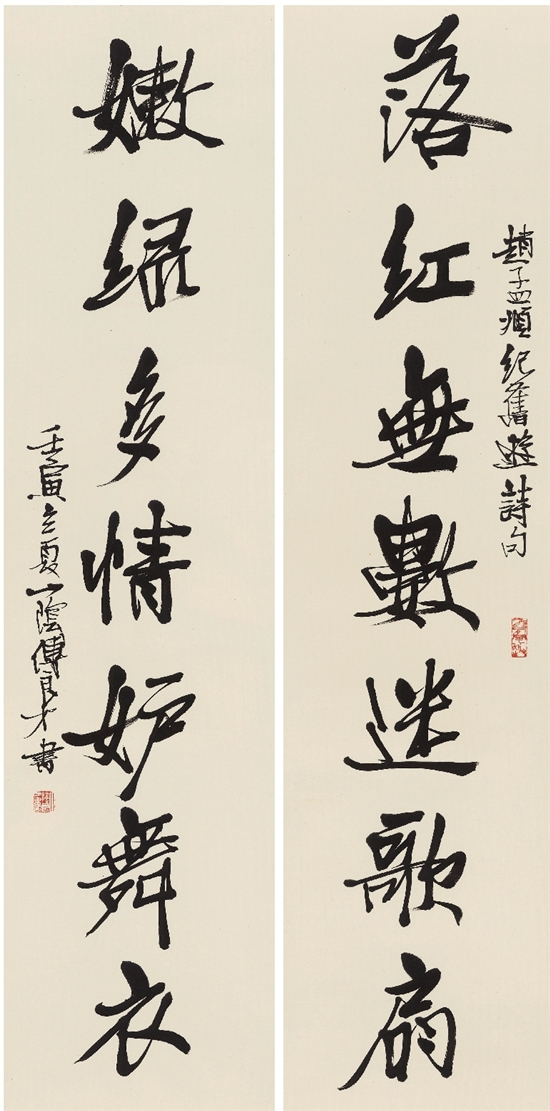 趙孟頫紀舊遊詩句
落紅無數迷歌扇
嫩綠多情妒舞衣
壬寅立夏山陰傅良才書